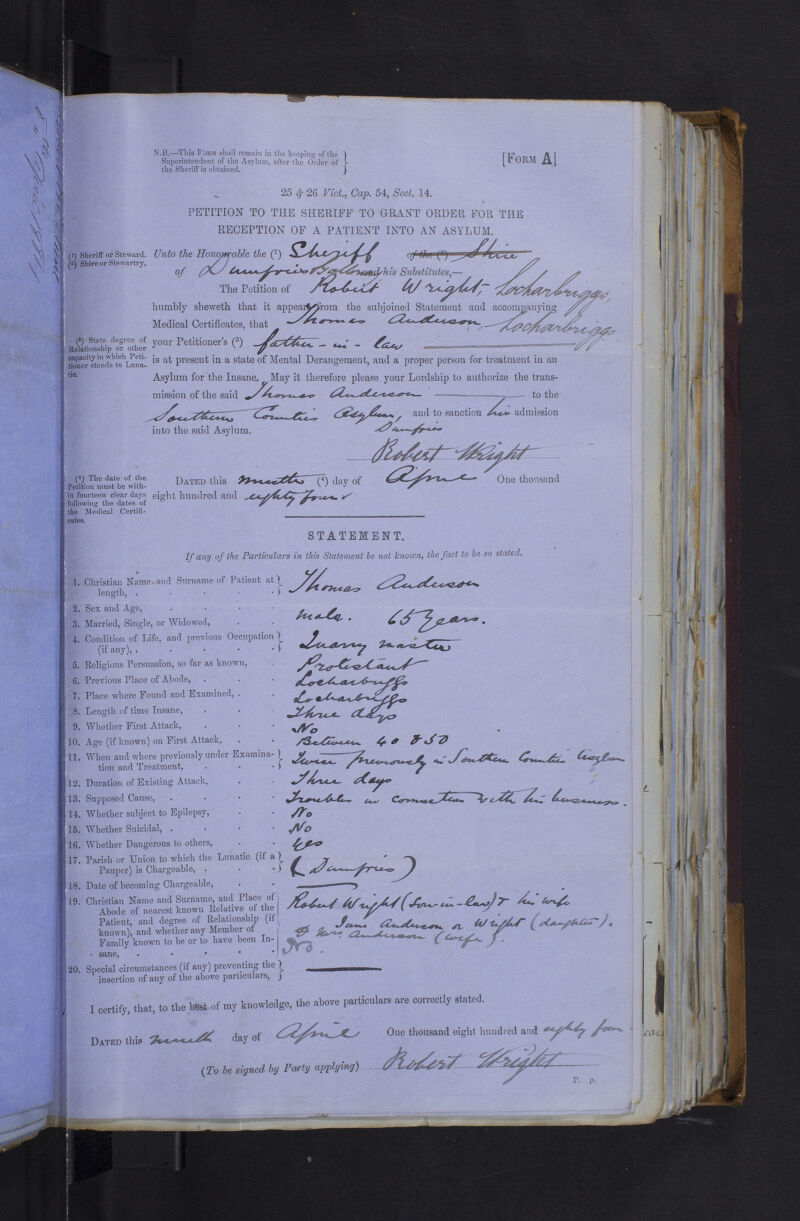 N.B.—This Form shall remain in the keeping of the
Superintendent of the Asylum, after the Order of
the Sheriff is obtained.
[Form A]
25 & 26 Vict., Cap. 54, Sect. 14.
PETITION TO THE SHERIFF TO GRANT ORDER FOR THE
RECEPTION OF A PATIENT INTO AN ASYLUM.
(1) Sheriff or Steward.
(2) Shire or Stewartry.
Unto the Honourable the (1) Sheriff of the (2) Shire
of Dumfries & Galloway and his Substitutes,—
The Petition of Robert Wright, Locharbriggs,
humbly sheweth that it appears from the subjoined Statement and accompanying
Medical Certificates, that Thomas Anderson, Locharbriggs
(3) State degree of
Relationship or other
capacity in which Peti-
tioner stands to Luna-
tic.
your Petitioner's (3) father-in-law
is at present in a state of Mental Derangement, and a proper person for treatment in an
Asylum for the Insane, May it therefore please your Lordship to authorize the trans-
mission of the said Thomas Anderson to the
Southern Counties Asylum, and to sanction his admission
into the said Asylum. Dumfries
Robert Wright
(4) The date of the
Petition must be with-
in fourteen clear days
following the dates of
the Medical Certifi-
cates.
Dated this ninth (4) day of April One thousand
eight hundred and eighty four
STATEMENT.
If any of the Particulars in this Statement be not known, the fact to be so stated.
1. Christian Name and Surname of Patient at
length, . Thomas Anderson
2. Sex and Age, male. 65 years.
3. Married, Single, or Widowed,
4. Condition of Life, and previous Occupation
(if any), . Quarry master
5. Religious Persuasion, so far as known, Protestant
6. Previous Place of Abode, . Locharbriggs
7. Place where Found and Examined, . Locharbriggs
8. Length of time Insane, Three days
9. Whether First Attack, No
10. Age (if known) on First Attack, Between 40 & 50
11. When and where previously under Examina-
tion and Treatment, Twice previously in Southern Counties Asylum
12. Duration of Existing Attack, Three days
13. Supposed Cause, . Troubles in connection with his business.
14. Whether subject to Epilepsy, No
15. Whether Suicidal, . No
16. Whether Dangerous to others, Yes
17. Parish or Union to which the Lunatic (if a
Pauper) is Chargeable, . (Dumfries)
18. Date of becoming Chargeable,
19. Christian Name and Surname, and Place of
Abode of nearest known Relative of the
Patient, and degree of Relationship (if
known), and whether any Member of
Family known to be or to have been In-
sane,
Robert Wright (Son-in-law) & his wife
Jane Anderson or Wright (daughter).
& Mrs Anderson (wife).
No.
20. Special circumstances (if any) preventing the
insertion of any of the above particulars,
I certify, that, to the best of my knowledge, the above particulars are correctly stated.
Dated this ninth day of April One thousand eight hundred and eighty four
(To be signed by Party applying) Robert Wright
P. p.